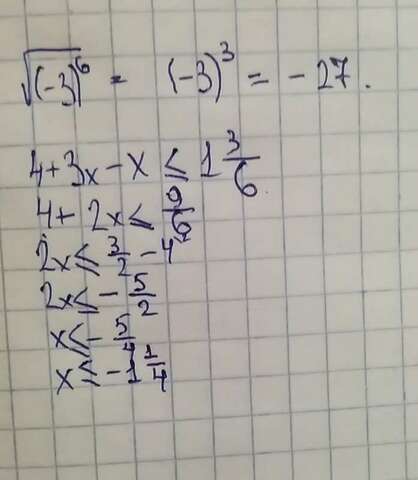 √(-3)⁶ = (-3)³ = -27.
4+3x-x ≤ 1 3/6
4+2x ≤ 9/6
2x ≤ 3/2 - 4
2x ≤ -5/2
x ≤ -5/4
x ≤ -1 1/4